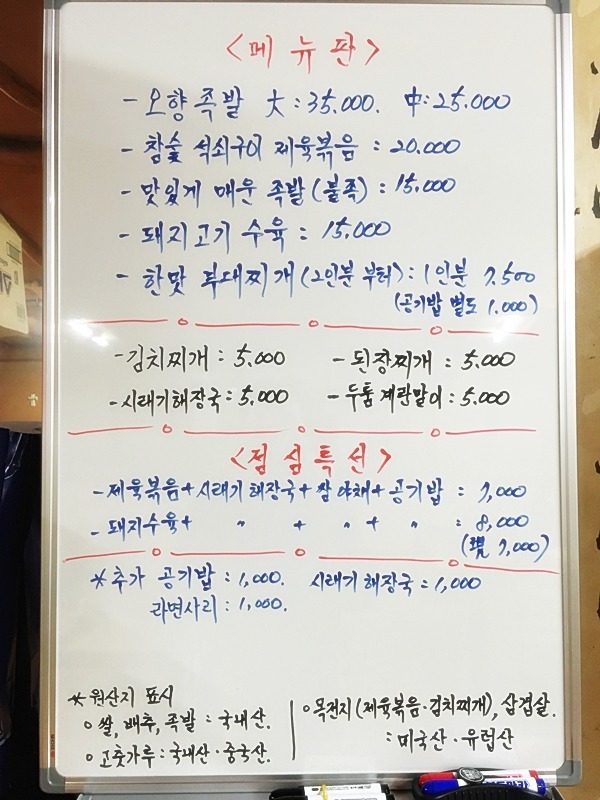 <메뉴판>
- 오향 족발 大 : 35.000. 中 : 25.000
- 참숯 석쇠구이 제육볶음 : 20.000
- 맛있게 매운 족발 (불족) : 15.000
- 돼지고기 수육 : 15.000
- 한맛 부대찌개 (2인분 부터) : 1인분 7.500
(공기밥 별도 1.000)
- 김치찌개 : 5.000 - 된장찌개 : 5.000
- 시래기해장국 : 5.000 - 두툼 계란말이 : 5.000
<점심특선>
- 제육볶음 + 시래기해장국 + 쌈야채 + 공기밥 : 7,000
- 돼지수육 + 〃 + 〃 + 〃 : 8,000
(現 7,000)
* 추가 공기밥 : 1,000. 시래기해장국 : 1,000
라면사리 : 1,000.
* 원산지 표시
○ 쌀, 배추, 족발 : 국내산.
○ 고춧가루 : 국내산 · 중국산.
○ 목전지 (제육볶음 · 김치찌개), 삼겹살.
: 미국산 · 유럽산